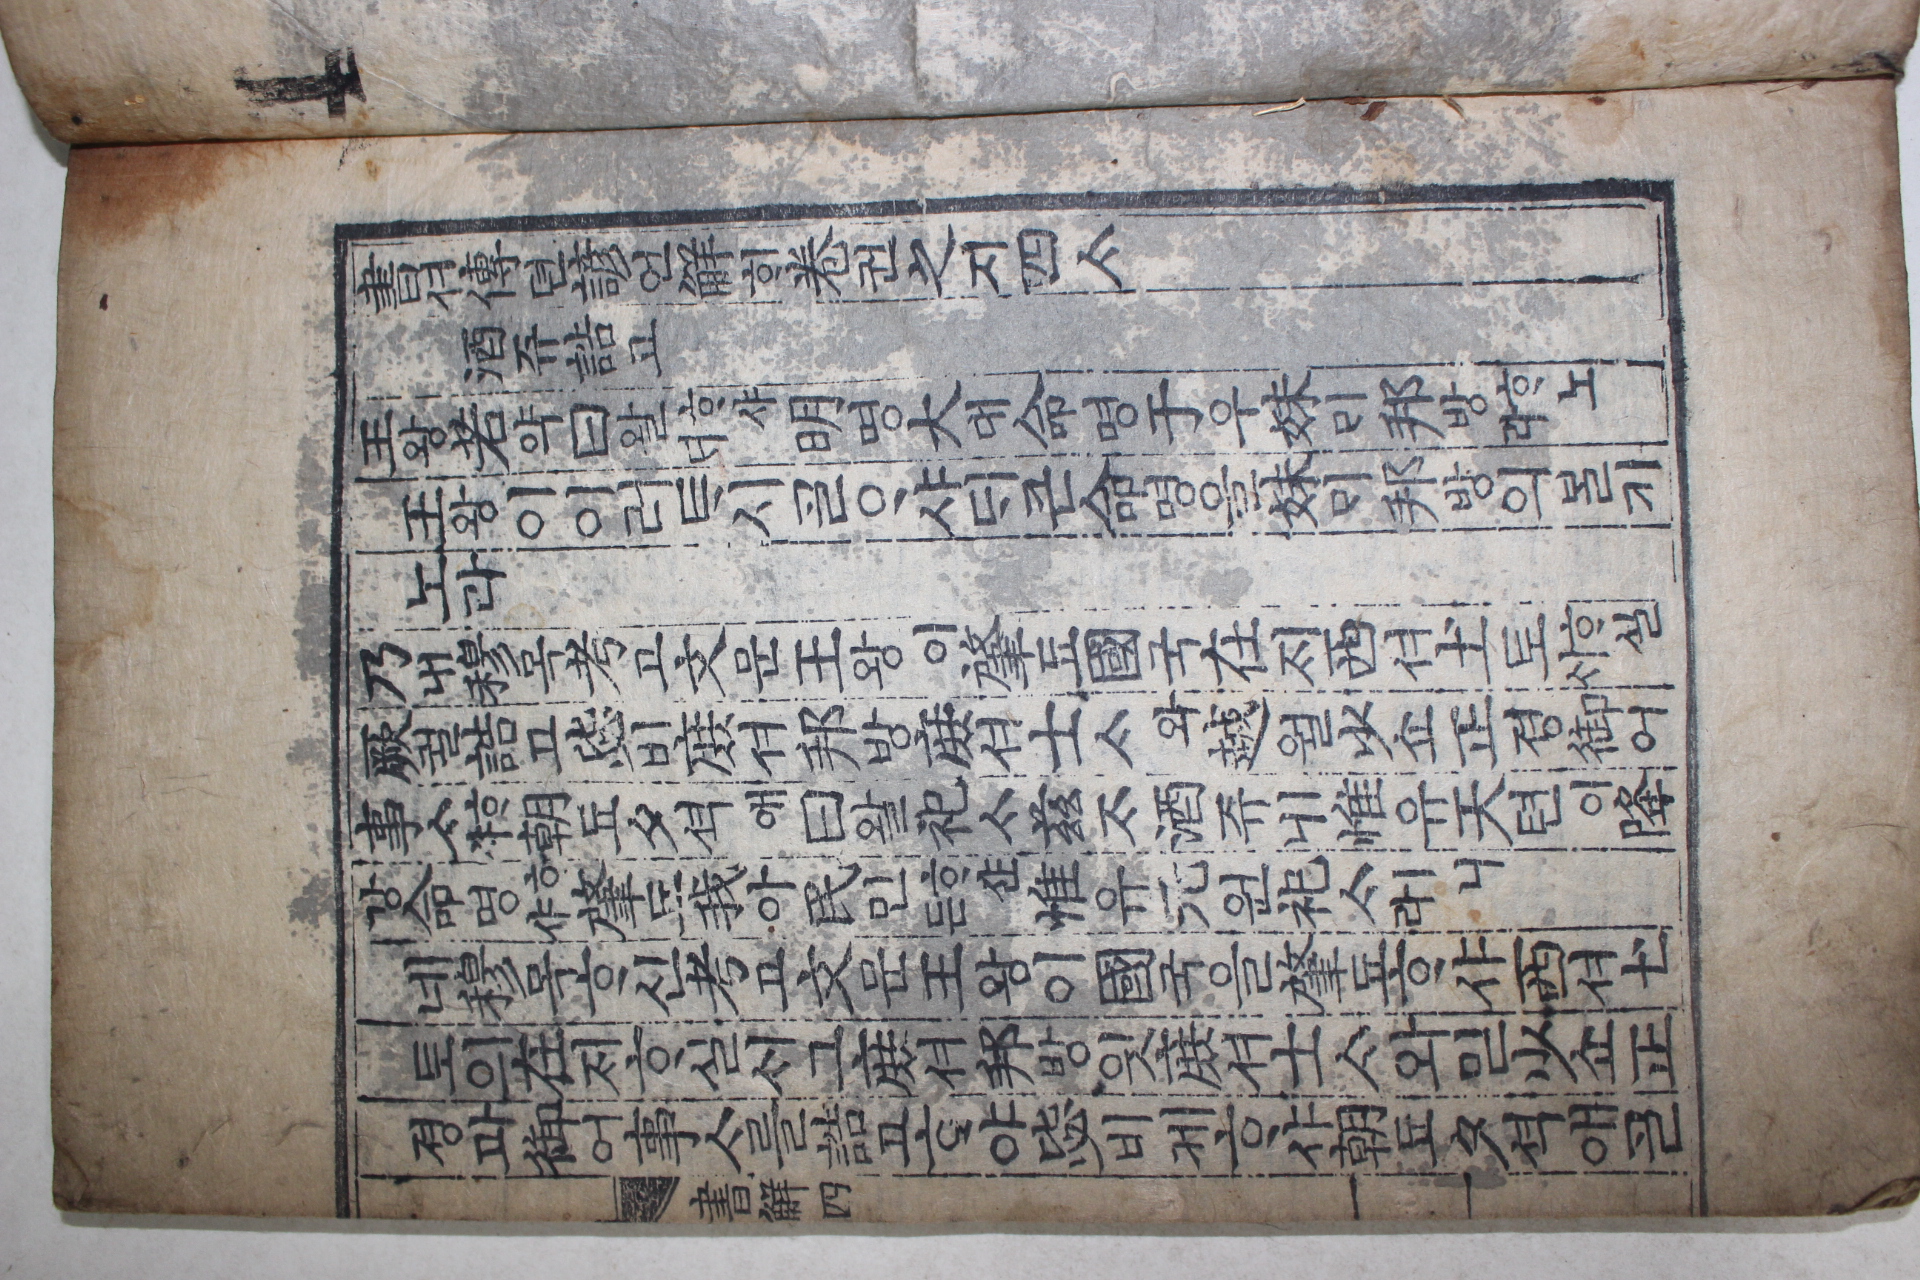 書셔傳뎐諺언解ᄒᆡ卷권之지四ᄉᆞ
酒쥬誥고
王왕若약曰왈ᄒᆞ샤ᄃᆡ明명大대命명于우妹ᄆᆡ邦방ᄒᆞ노라
王왕이이러ᄐᆞ시ᄀᆞᆯᄋᆞ샤ᄃᆡ큰命명을妹ᄆᆡ邦방의ᄇᆞᆯ기
노라
乃내穆목考고文문王왕이肇됴國국在ᄌᆡ西셔土토ᄒᆞ실ᄉᆡ
厥궐誥고毖비庶셔邦방庶셔士ᄉᆞ와越월少쇼正졍御어
事ᄉᆞᄒᆞ샤朝됴夕셕애曰왈祀ᄉᆞ玆ᄌᆞ酒쥬ㅣ니惟유天텬이降
강命명ᄒᆞ샤肇됴我아民민ᄒᆞ샨든惟유元원祀ᄉᆞㅣ니라
네穆목ᄒᆞ신考고文문王왕이國국을肇됴ᄒᆞ샤西셔土
토의在ᄌᆡᄒᆞ실ᄉᆡ그庶셔邦방읫庶셔士ᄉᆞ와믿少쇼正
졍과御어事ᄉᆞ를誥고ᄒᆞ야毖비케ᄒᆞ샤朝됴夕셕애ᄀᆞᆯ
書解四
一